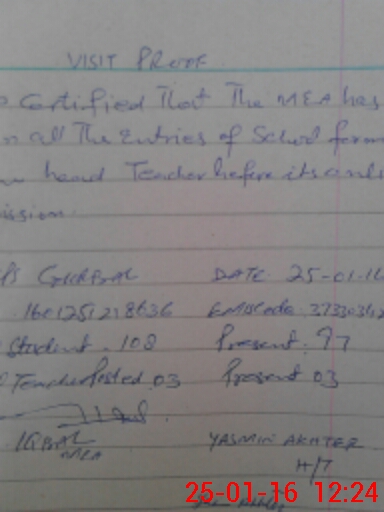 VISIT PROOF
Certified That The MEA has
all The Entries of School form
head Teacher before its onli
ission.
GUKBAL DATE 25-01-16
1601251218636 EMISCode 37330312
Student. 108 Present. 97
Teacher Posted 03 Present 03
IQBAL YASMIN AKHTER
MEA H/T
25-01-16 12:24